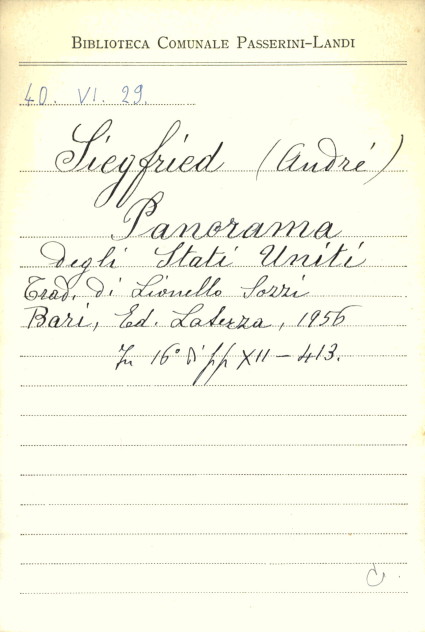 Biblioteca Comunale Passerini-Landi
40. VI. 29.
Siegfried (André)
Panorama
degli Stati Uniti
Trad. di Lionello Sozzi
Bari, Ed. Laterza, 1956
In 16° di pp XII-413.